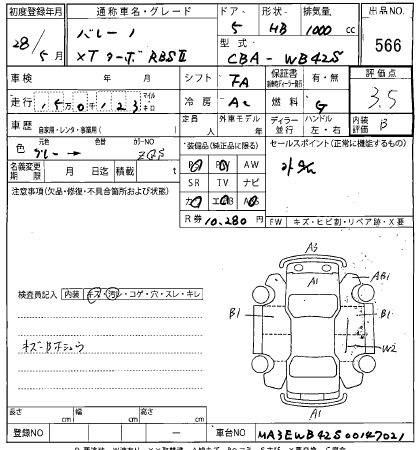 初度登録年月 通称車名・グレード ドア 形状 排気量 出品NO.
28/5月 バレーノ 5 HB 1000cc 566
XTターボ RBSⅡ 型式 CBA-WB42S
車検 年 月 シフト FA 保証書 有・無 評価点
3.5
走行 マイル キロ 冷房 AC 燃料 G
車歴 自家用・レンタ・事業用( ) 定員 人 外車モデル 年 ディーラー 並行 ハンドル 左・右 内装評価 B
色 元色 グレー → 色替 カラーNO ZQS
装備品(純正品に限る) セールスポイント(正常に機能するもの)
名義変更期限 月 日迄 積載 t
AW
注意事項(欠品・修復・不具合箇所および状態) SR TV ナビ
R券 10,280円 FW キズ・ヒビ割・リペア跡・X要
検査員記入 内装 キズ・汚レ・コゲ・穴・スレ・キレ
A3
A1
AB1
B1
B1
W2
A1
長さ cm 幅 cm 高さ cm
登録NO ー 車台NO MA3EWB42S00147021